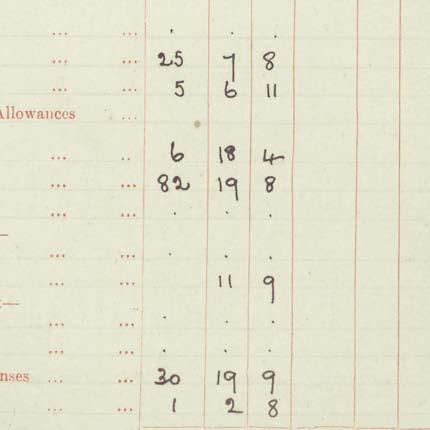 ... ... . . .
... ... 25 7 8
... ... 5 6 11
Allowances ...
... .. 6 18 4
... ... 82 19 8
... ... . . .
—
... ... . . .
... ... 11 9
—
... ... . . .
... ... . . .
nses ... ... 30 19 9
... ... 1 2 8